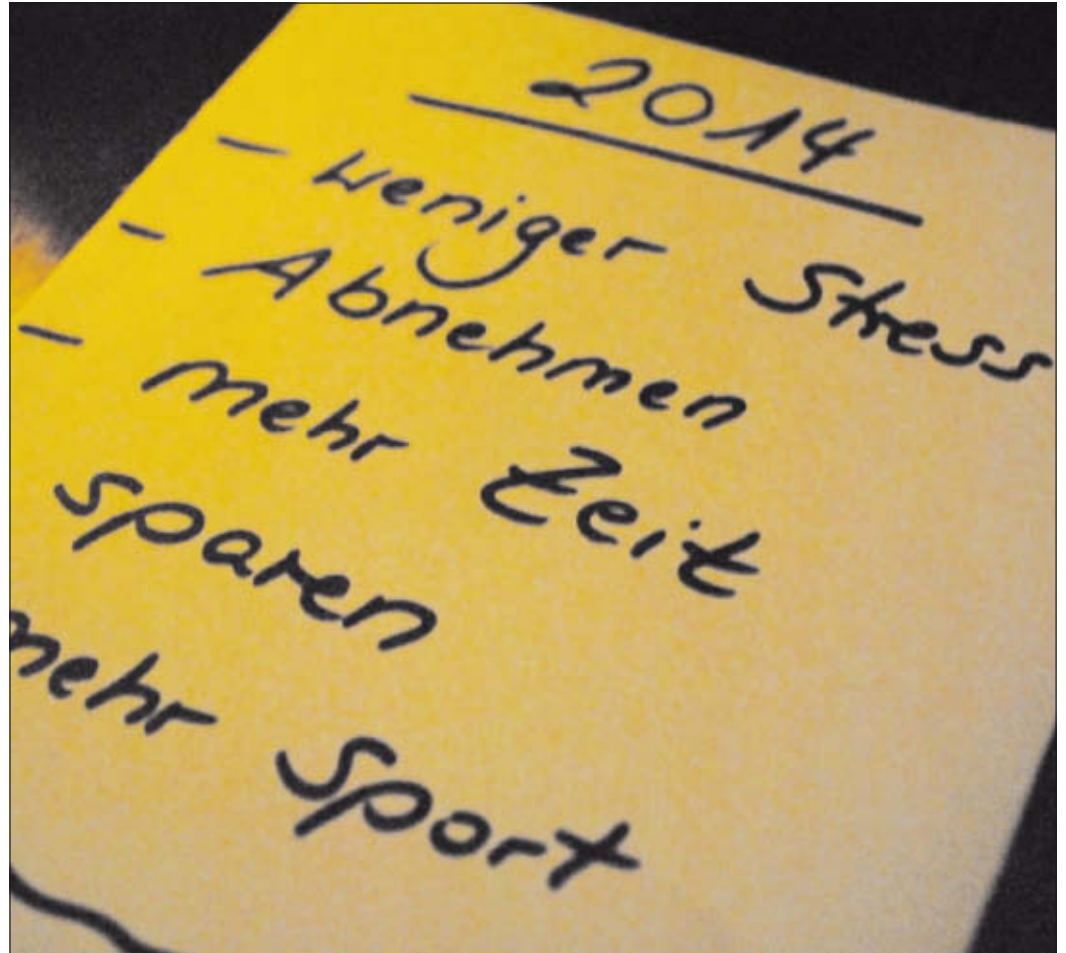 2014
- weniger Stress
- Abnehmen
- mehr Zeit
sparen
mehr Sport